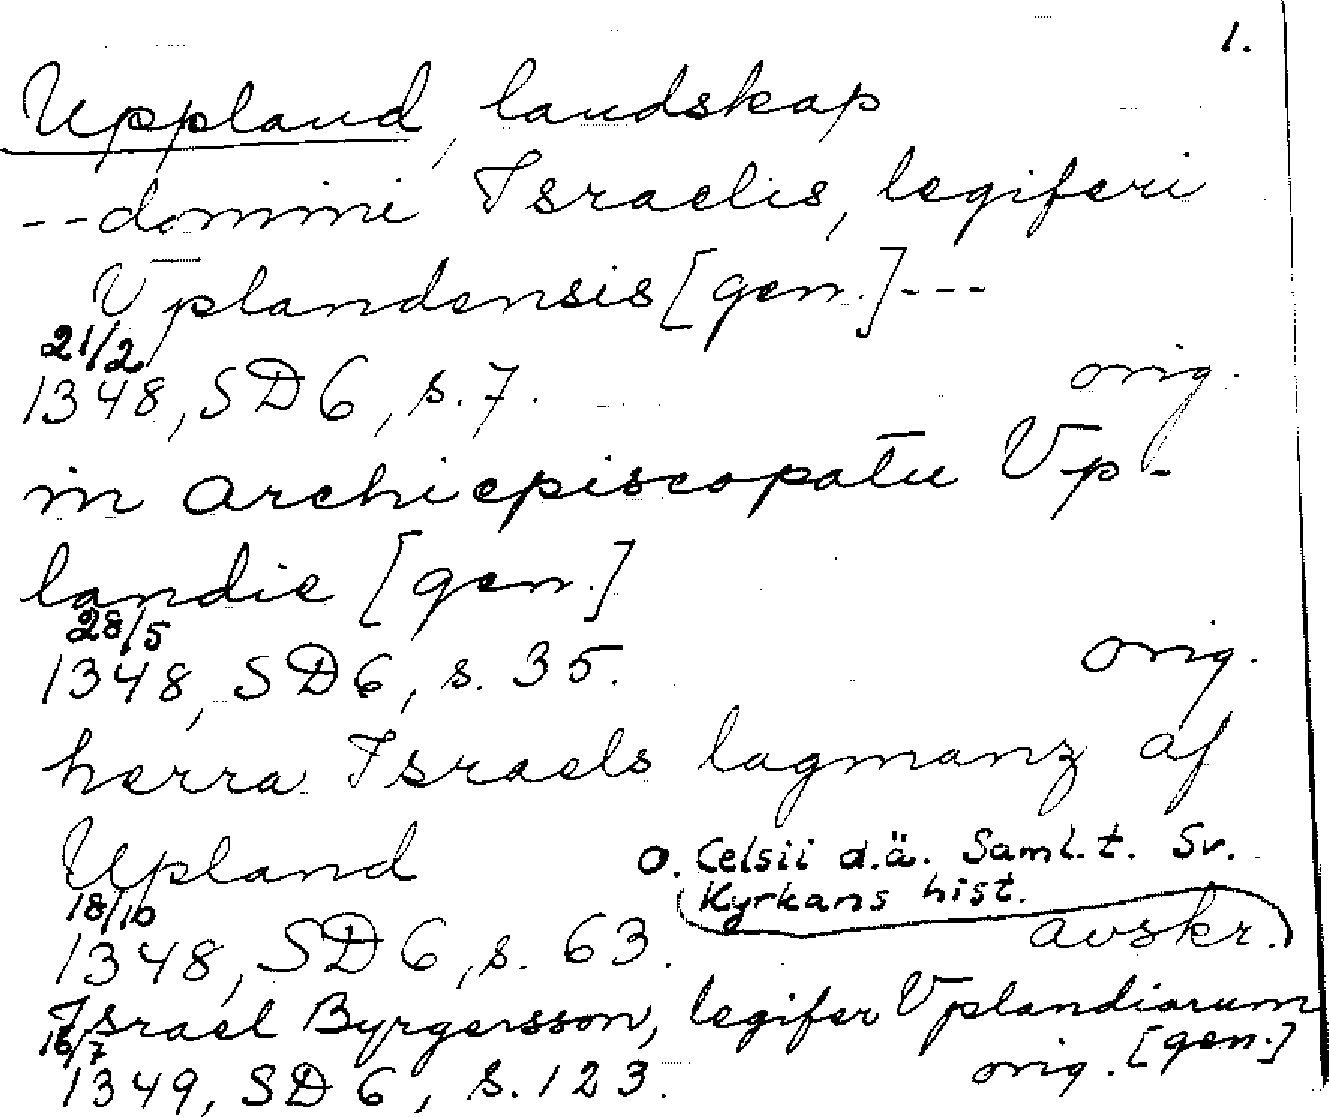 1.
Uppland, landskap
-- domini Israelis, legiferi
Vplandensis [gen.] ---
21/2
1348, SD 6, s. 7. orig.
in archiepiscopatu Vp-
landie [gen.]
28/5
1348, SD 6, s. 35. orig.
herra Israels lagmanz af
Upland
O. Celsii d.ä. Saml. t. Sv.
Kyrkans hist.
18/10
1348, SD 6, s. 63. avskr.
Israel Byrgersson, legifer Vplandiarum
[gen.]
16/7
1349, SD 6, s. 123. orig.